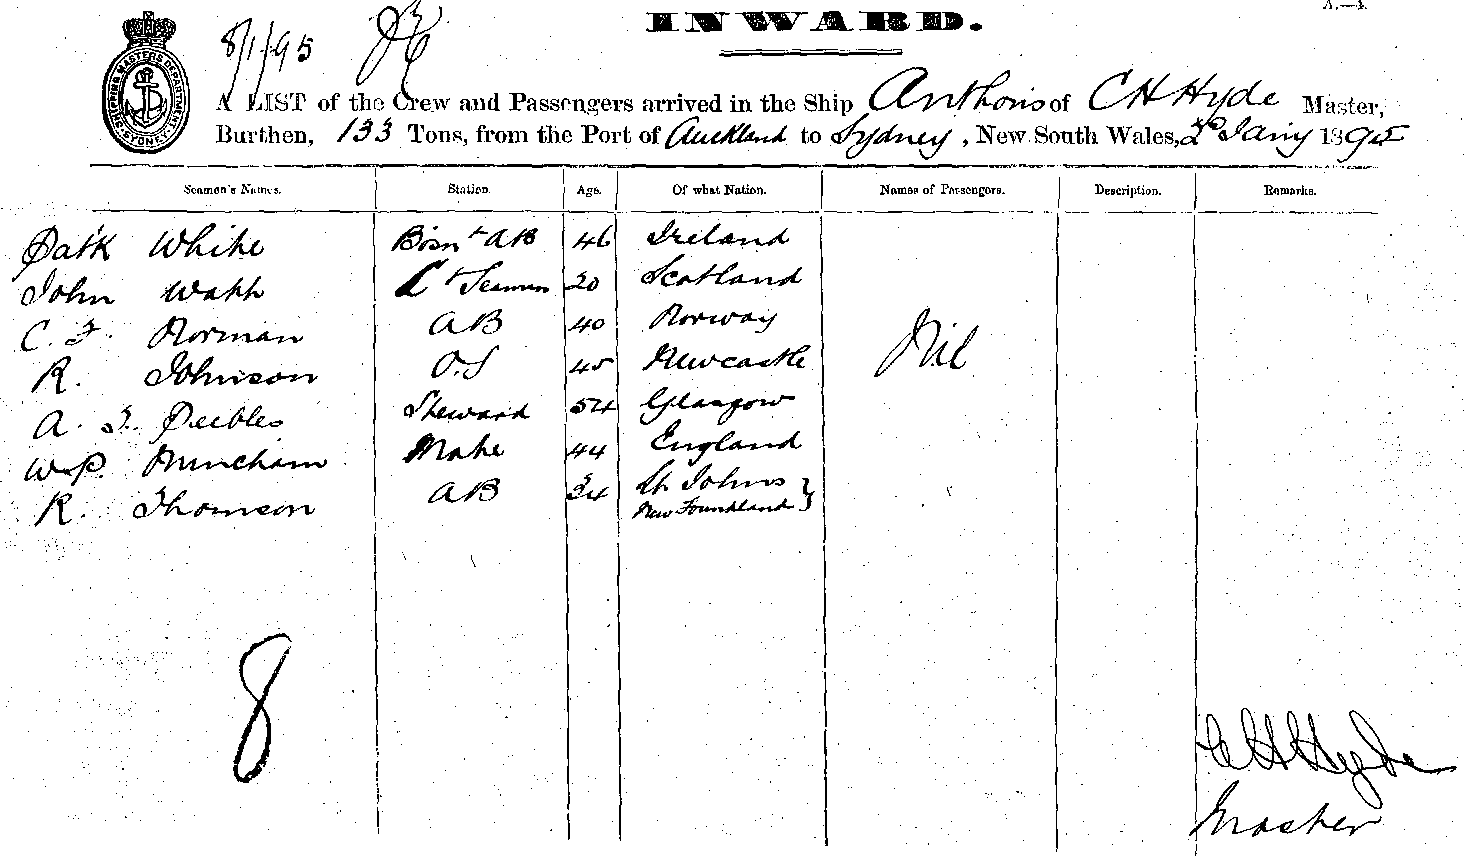 A.—4.
INWARD.
8/1/95
SHIPPING MASTERS DEPARTMENT SYDNEY
A LIST of the Crew and Passengers arrived in the Ship Anthons of C H Hyde Master,
Burthen, 133 Tons, from the Port of Auckland to Sydney, New South Wales, 2d Jany 1895
Seamen's Names. Station. Age. Of what Nation. Names of Passengers. Description. Remarks.
Patk White Bosn & AB 46 Ireland
John Watt Seaman 20 Scotland
C. F. Norman AB 40 Norway
R. Johnson O.S 45 Newcastle Nil
A. F. Peebles Steward 54 Glasgow
W.P. Muncham Mate 44 England
R. Thomson AB 34 St Johns
New Foundland
8
C H Hyde
Master